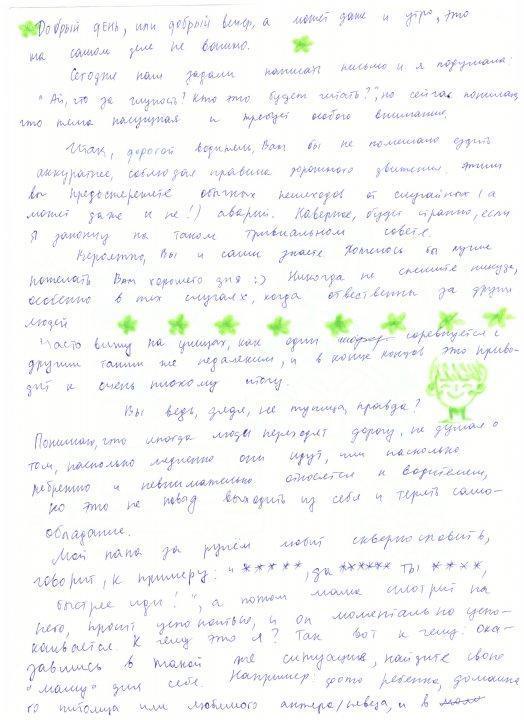 Добрый день, или добрый вечер, а может даже и утро, это
на самом деле не важно.
Сегодня нам задали написать письмо и я подумала:
"Ай, что за глупость? Кто это будет читать?", но сейчас понимаю,
что тема насущная и требует особого внимания.
Итак, дорогой водитель, Вам бы не помешало ездить
аккуратнее, соблюдая правила дорожного движения. Этим
вы предостережете обычных пешеходов от случайных (а
может даже и не!) аварий. Наверное, будет странно, если
я закончу на таком тривиальном совете.
Вероятно, Вы и сами знаете. Хотелось бы лучше
пожелать Вам хорошего дня :) Никогда не спешите никуда,
особенно в тех случаях, когда ответственны за других
людей
Часто вижу на улицах, как один соревнуется с
другим таким же недалеким, и в конце концов это приво-
дит к очень плохому итогу.
Вы ведь, дядя, не тупица, правда?
Понимаю, что иногда люди переходят дорогу, не думая о
том, насколько медленно они идут, или насколько
небрежно и невнимательно относятся к водителям,
но это не повод выходить из себя и терять само-
обладание.
Мой папа за рулём любит сквернословить,
говорит, к примеру: "*****, да ****** ты ****,
быстрее иди!", а потом мама смотрит на
него, просит успокоиться, и он моментально успо-
каивается. К чему это я? Так вот к чему: ока-
завшись в такой же ситуации, найдите свою
"маму" для себя. Например: фото ребенка, домашне-
го питомца или любимого актера/певца, и в